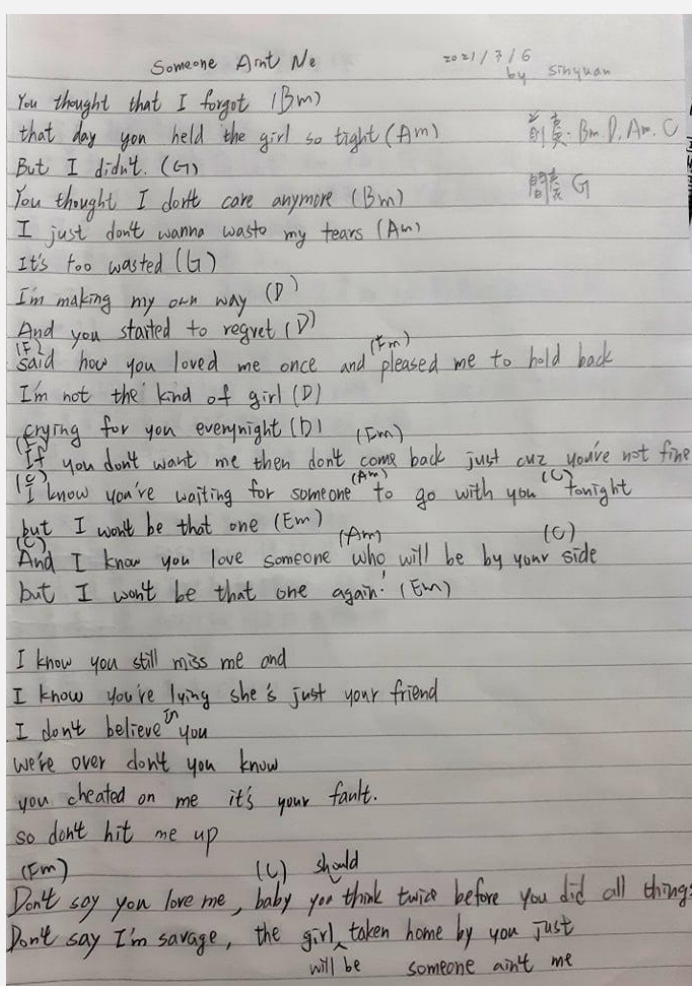 Someone Aint Me
2021/7/6
by sinyuan
前奏: Bm. D. Am. C
間奏 G
You thought that I forgot (Bm)
that day you held the girl so tight (Am)
But I didn't. (G)
You thought I don't care anymore (Bm)
I just don't wanna waste my tears (Am)
It's too wasted (G)
I'm making my own way (D)
And you started to regret (D)
(F) (Em)
said how you loved me once and pleased me to hold back
I'm not the kind of girl (D)
crying for you everynight (D)
(F) (Em)
If you don't want me then don't come back just cuz you're not fine
(C) (Am) (C)
I know you're waiting for someone to go with you tonight
but I won't be that one (Em)
(C) (Am) (C)
And I know you love someone who will be by your side
but I won't be that one again! (Em)
I know you still miss me and
I know you're lying she's just your friend
I don't believe in you
we're over don't you know
you cheated on me it's your fault.
so don't hit me up
(Em) (C)
Don't say you love me, baby you should think twice before you did all things
Don't say I'm savage, the girl will be taken home by you just
someone ain't me